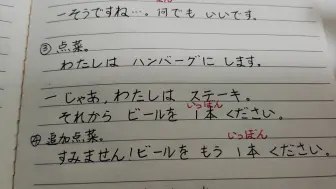 ーそうですね…。何でも いいです。
③ 点菜。
わたしは ハンバーグに します。
ーじゃあ、わたしは ステーキ。
いっぽん
それから ビールを 1本 ください。
④ 追加点菜。
いっぽん
すみません!ビールを もう 1本 ください。